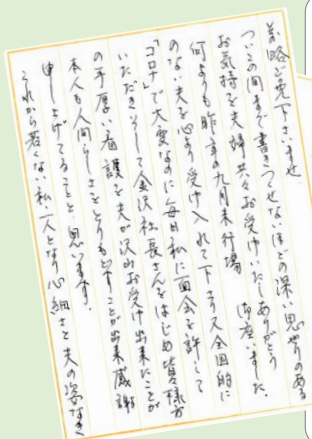 前略ご免下さいませ
ついこの間まで書きつくせないほどの深い思やりのある
お気持を夫婦共々お受けいたしありがとう
御座いました。
何よりも昨年の九月末行場
のない夫を心より受け入れて下さり又全国的に
「コロナ」で大変なのに毎日私に面会を許して
いただきそして金沢社長さんをはじめ皆様方
の手厚い看護を夫が沢山お受け出来たことが
本人も人間らしさをとりもどすことが出来感謝
申し上げてることと思います。
これから若くない私一人となり心細さと夫の姿なき